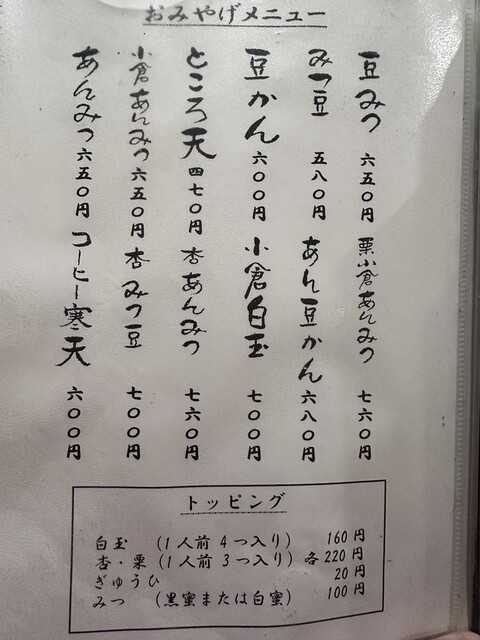 おみやげメニュー
豆みつ 六五〇円
みつ豆 五八〇円
豆かん 六〇〇円
ところ天 四七〇円
小倉あんみつ 六五〇円
あんみつ 六五〇円
栗小倉あんみつ 七六〇円
あん豆かん 六八〇円
小倉白玉 七〇〇円
杏あんみつ 七六〇円
杏みつ豆 七〇〇円
コーヒー寒天 六〇〇円
トッピング
白玉 (1人前4つ入り) 160円
杏・栗 (1人前3つ入り) 各220円
ぎゅうひ 20円
みつ (黒蜜または白蜜) 100円